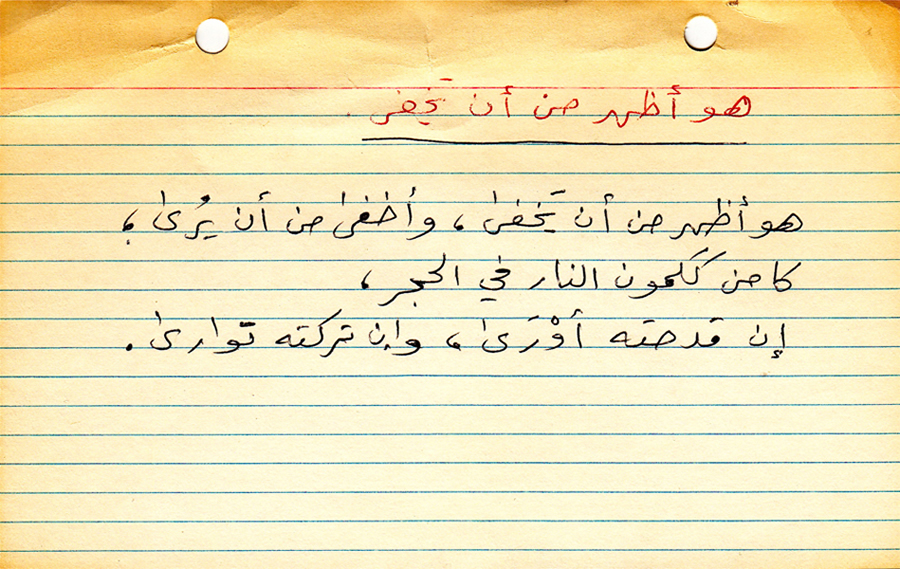 هو أظهر من أن يَخفى .
هو أظهر من أن يَخفىٰ ، وأخفىٰ من أن يُرىٰ ،
كامن ككمون النار في الحجر ،
إن قدحته أوْرَىٰ ، وإن تركته توارىٰ .